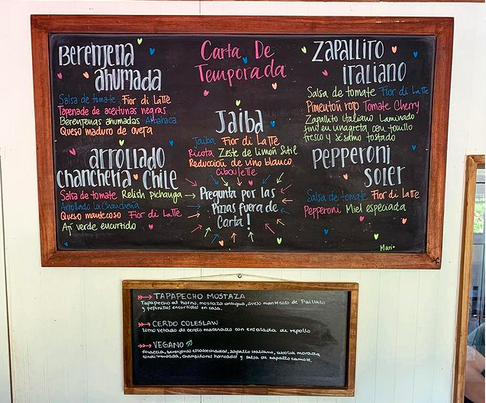 Berenjena
ahumada
Salsa de tomate Fior di Latte
Tapenade de aceitunas negras
Berenjenas ahumadas Albahaca
Queso maduro de oveja
arrollado
chancheria Chile
Salsa de tomate Relish pichanga
Arrollado La Chancheria
Queso mantecoso Fior di Latte
Ají verde encurtido
Carta De
Temporada
Jaiba
Jaiba Fior di Latte
Ricota Zeste de limón Sutil
Reducción de vino blanco
Ciboulette
Pregunta por las
Pizzas fuera de
Carta!
Zapallito
italiano
Salsa de tomate Fior di Latte
Pimentón rojo Tomate Cherry
Zapallito italiano Laminado
fresco y sésamo tostado
Pepperoni
Soler
Salsa de tomate Fior di Latte
Pepperoni Miel especiada
Mari
TAPAPECHO MOSTAZA
Tapapecho al horno, mostaza antigua, queso mantecoso de
y pepinillos encurtidos en casa.
CERDO COLESLAW
Lomo vetado de cerdo marinado con ensalada de repollo
VEGANO
Focaccia, berenjenas zapallo italiano, cebolla morada
champiñones y salsa de zapallo camote